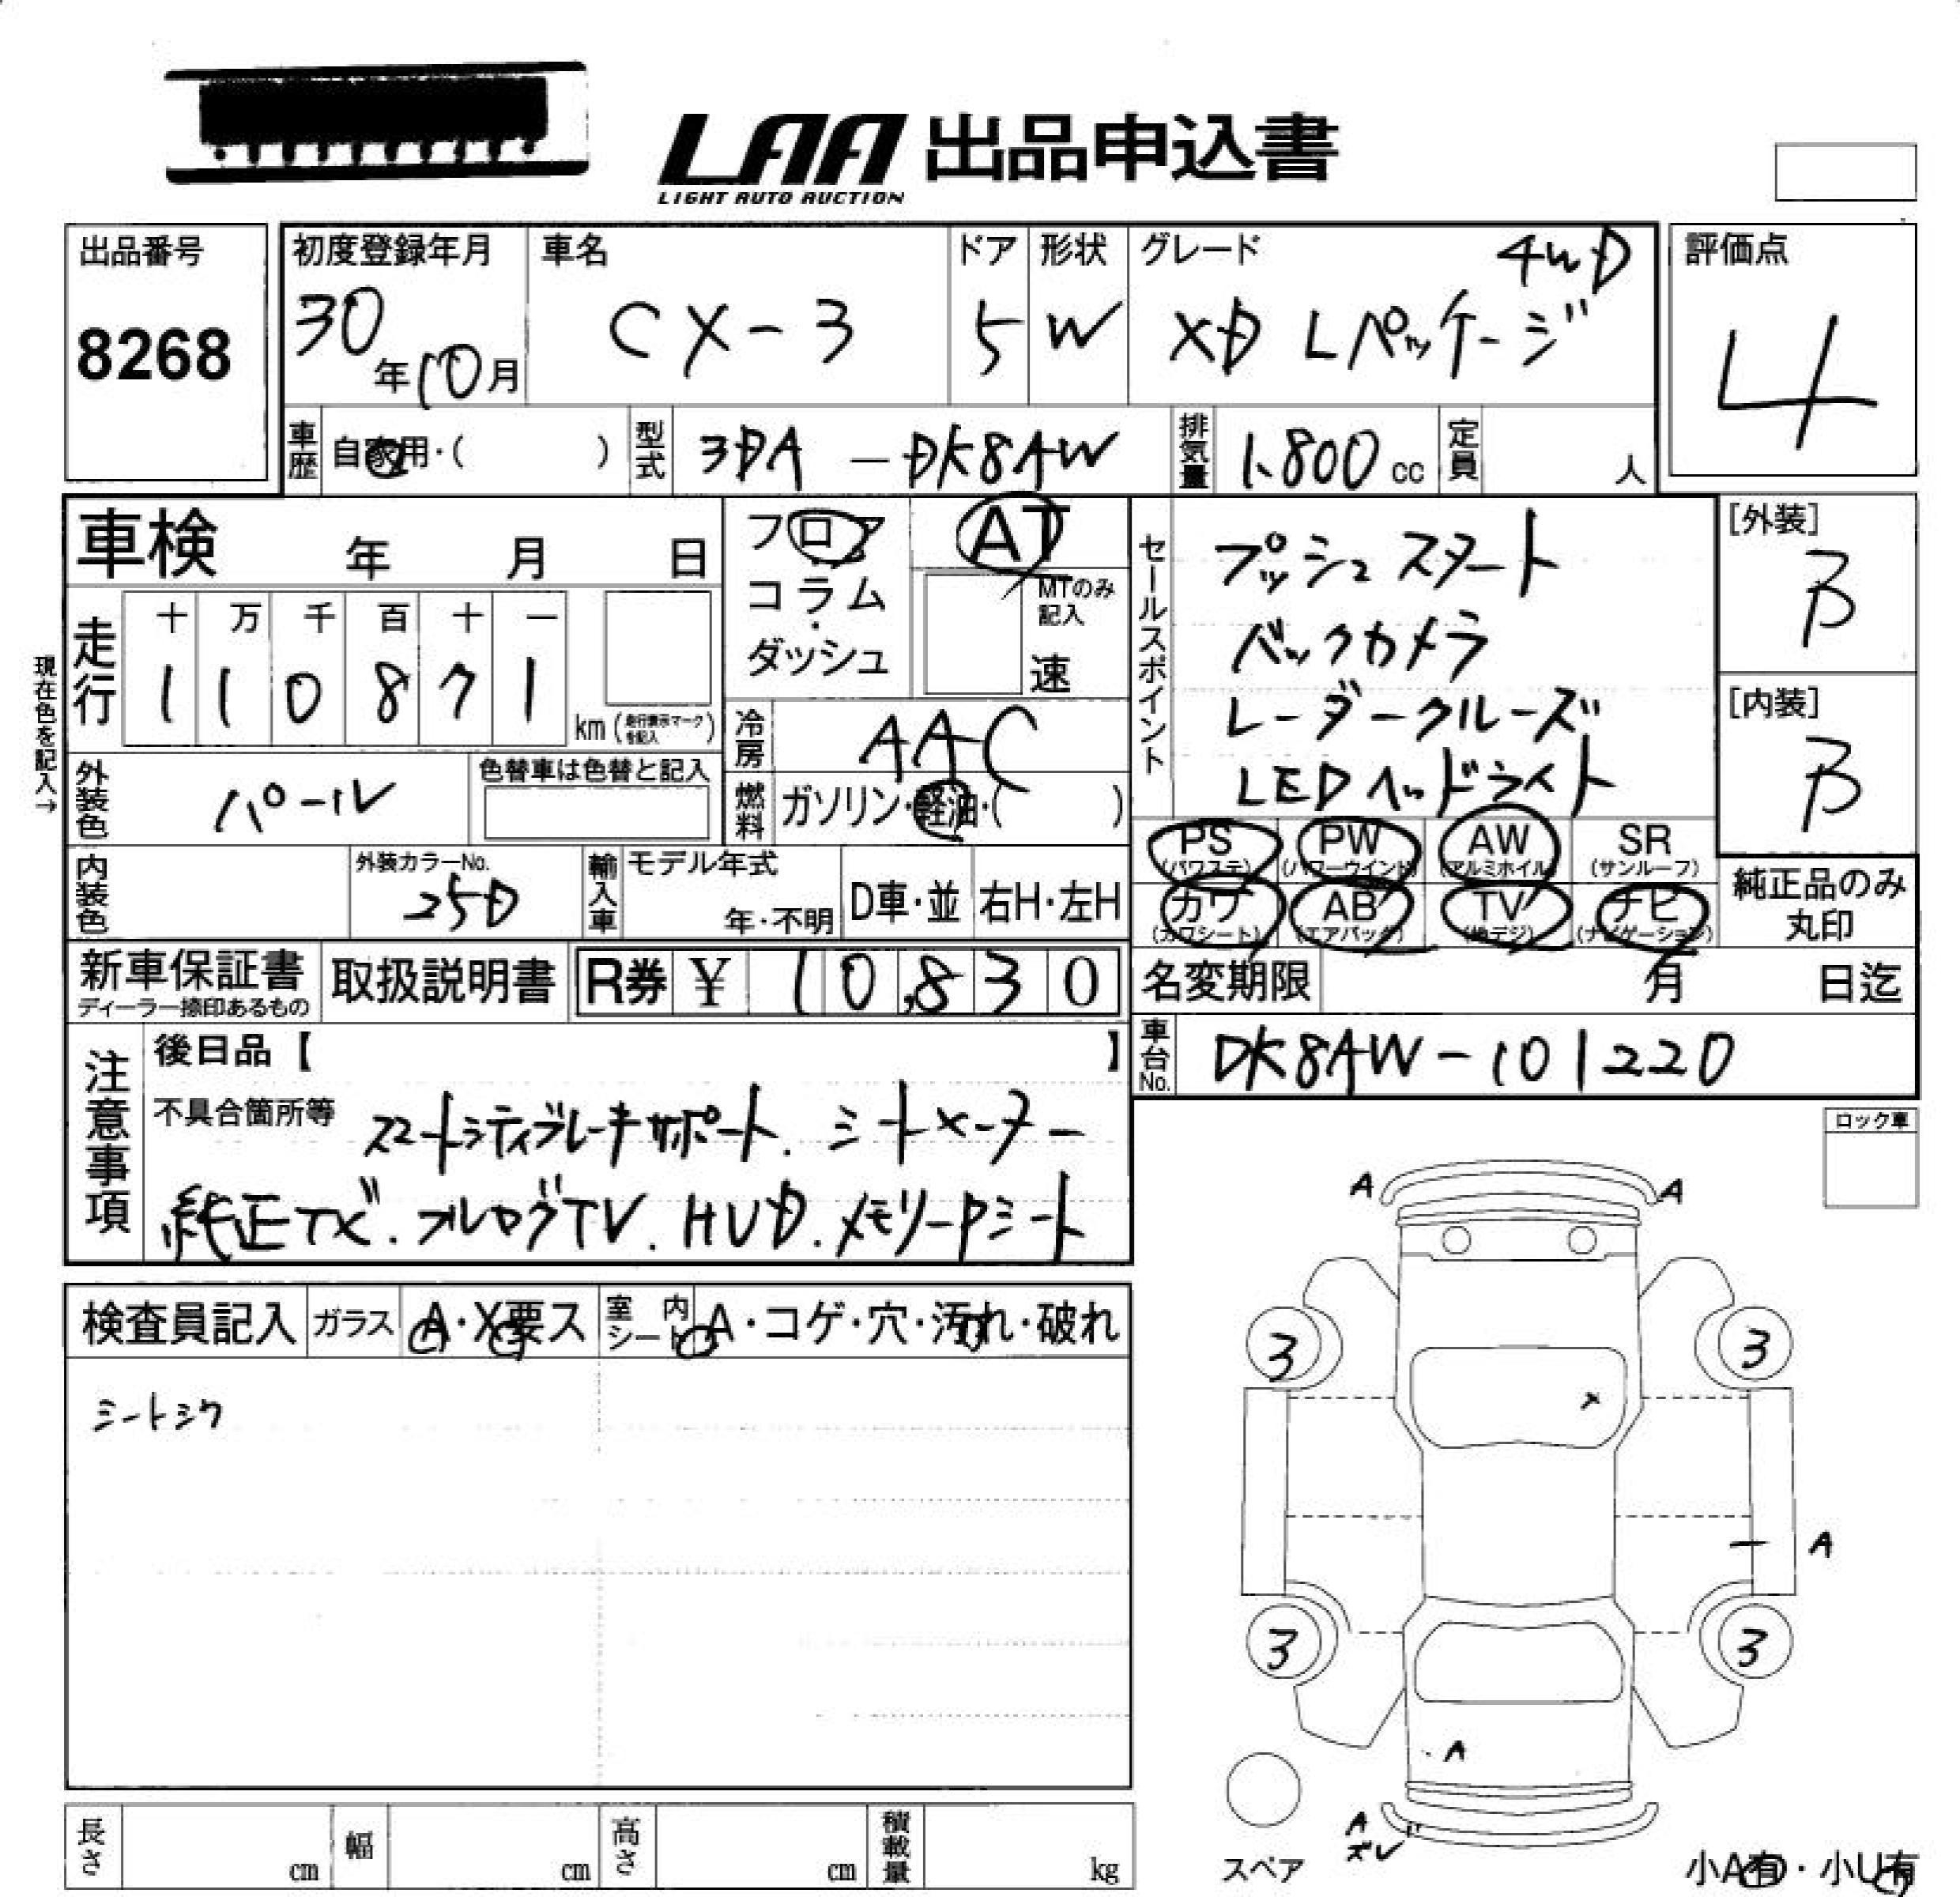 LAA 出品申込書
LIGHT AUTO AUCTION
出品番号
8268
初度登録年月
30年10月
車名
CX-3
ドア
5
形状
W
グレード
4WD
XD Lパッケージ
評価点
4
車歴
自家用・( )
型式
3DA-DK8AW
排気量
1,800cc
定員
人
車検 年 月 日
フロア
コラム
・
ダッシュ
AT
MTのみ
記入
速
セールスポイント
プッシュスタート
バックカメラ
レーダークルーズ
LEDヘッドライト
[外装]
B
[内装]
B
現在色を記入→
走行
十 万 千 百 十 一
1 1 0 8 7 1
km (走行表示マークを記入)
冷房
AAC
外装色
パール
色替車は色替と記入
燃料
ガソリン・軽油・( )
PS
(パワステ)
PW
(パワーウインド)
AW
(アルミホイル)
SR
(サンルーフ)
カワ
(カワシート)
AB
(エアバック)
TV
(地デジ)
ナビ
(ナビゲーション)
純正品のみ
丸印
内装色
外装カラーNo.
25D
輸入車
モデル年式
年・不明
D車・並
右H・左H
新車保証書
ディーラー捺印あるもの
取扱説明書
R券 ¥ 10,830
名変期限 月 日迄
車台No.
DK8AW-101220
注意事項
後日品【 】
不具合箇所等 スマートシティブレーキサポート. シートヒーター
純正ナビ.フルセグTV.HUD.メモリーPシート
検査員記入
ガラス
A・X要ス
室内
シート
A・コゲ・穴・汚れ・破れ
シートシワ
ロック車
A A
3 3
x
A
3 3
A
A
ズレ
スペア
小A有・小U有
長さ cm
幅 cm
高さ cm
積載量 kg